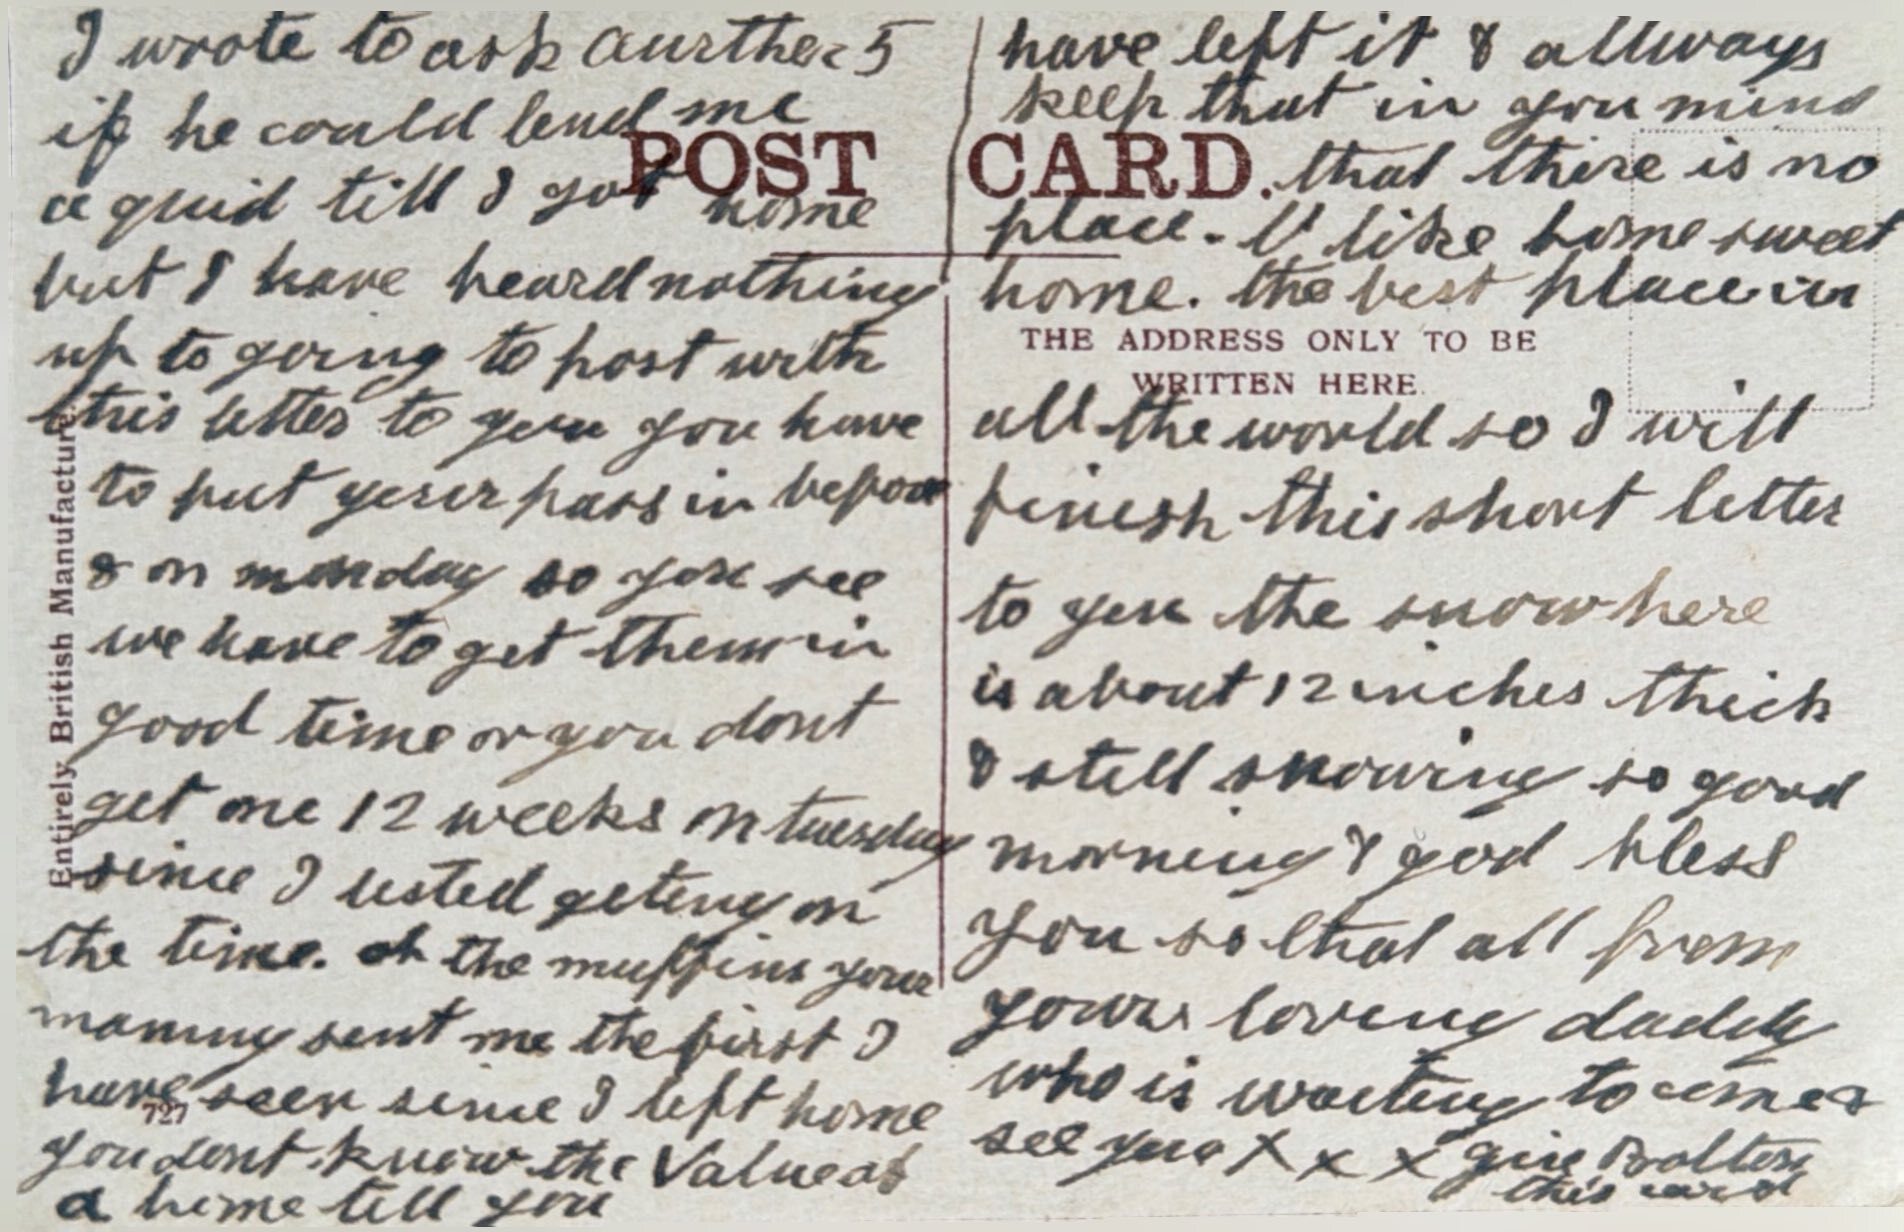 I wrote to ask aurther 5
if he could lend me
a quid till I got home
but I have heard nothing
up to going to post with
this letter to you you have
to put your pass in befoar
& on monday so you see
we have to get them in
good time or you dont
get one 12 weeks on tuesday
since I listed geting on
the time. oh the muffins your
mammy sent me the first I
have seen since I left home
you dont know the Value of
a home till you
have left it & allways
keep that in you mind
that there is no
place like home sweet
home. the best place in
all the world so I will
finish this short letter
to you the snow here
is about 12 inches thick
& still snowing so good
morning & god bless
you so that all from
yours loving daddy
who is waiting to come &
see you X X X give Bolton
this card
POST CARD.
THE ADDRESS ONLY TO BE
WRITTEN HERE.
Entirely British Manufacture.
727